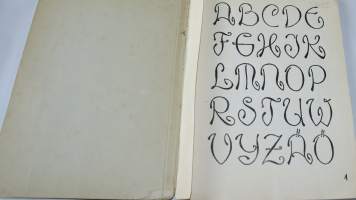 ABCDE
FGHIJK
LMNOP
RSTUW
VYZÄÖ
1